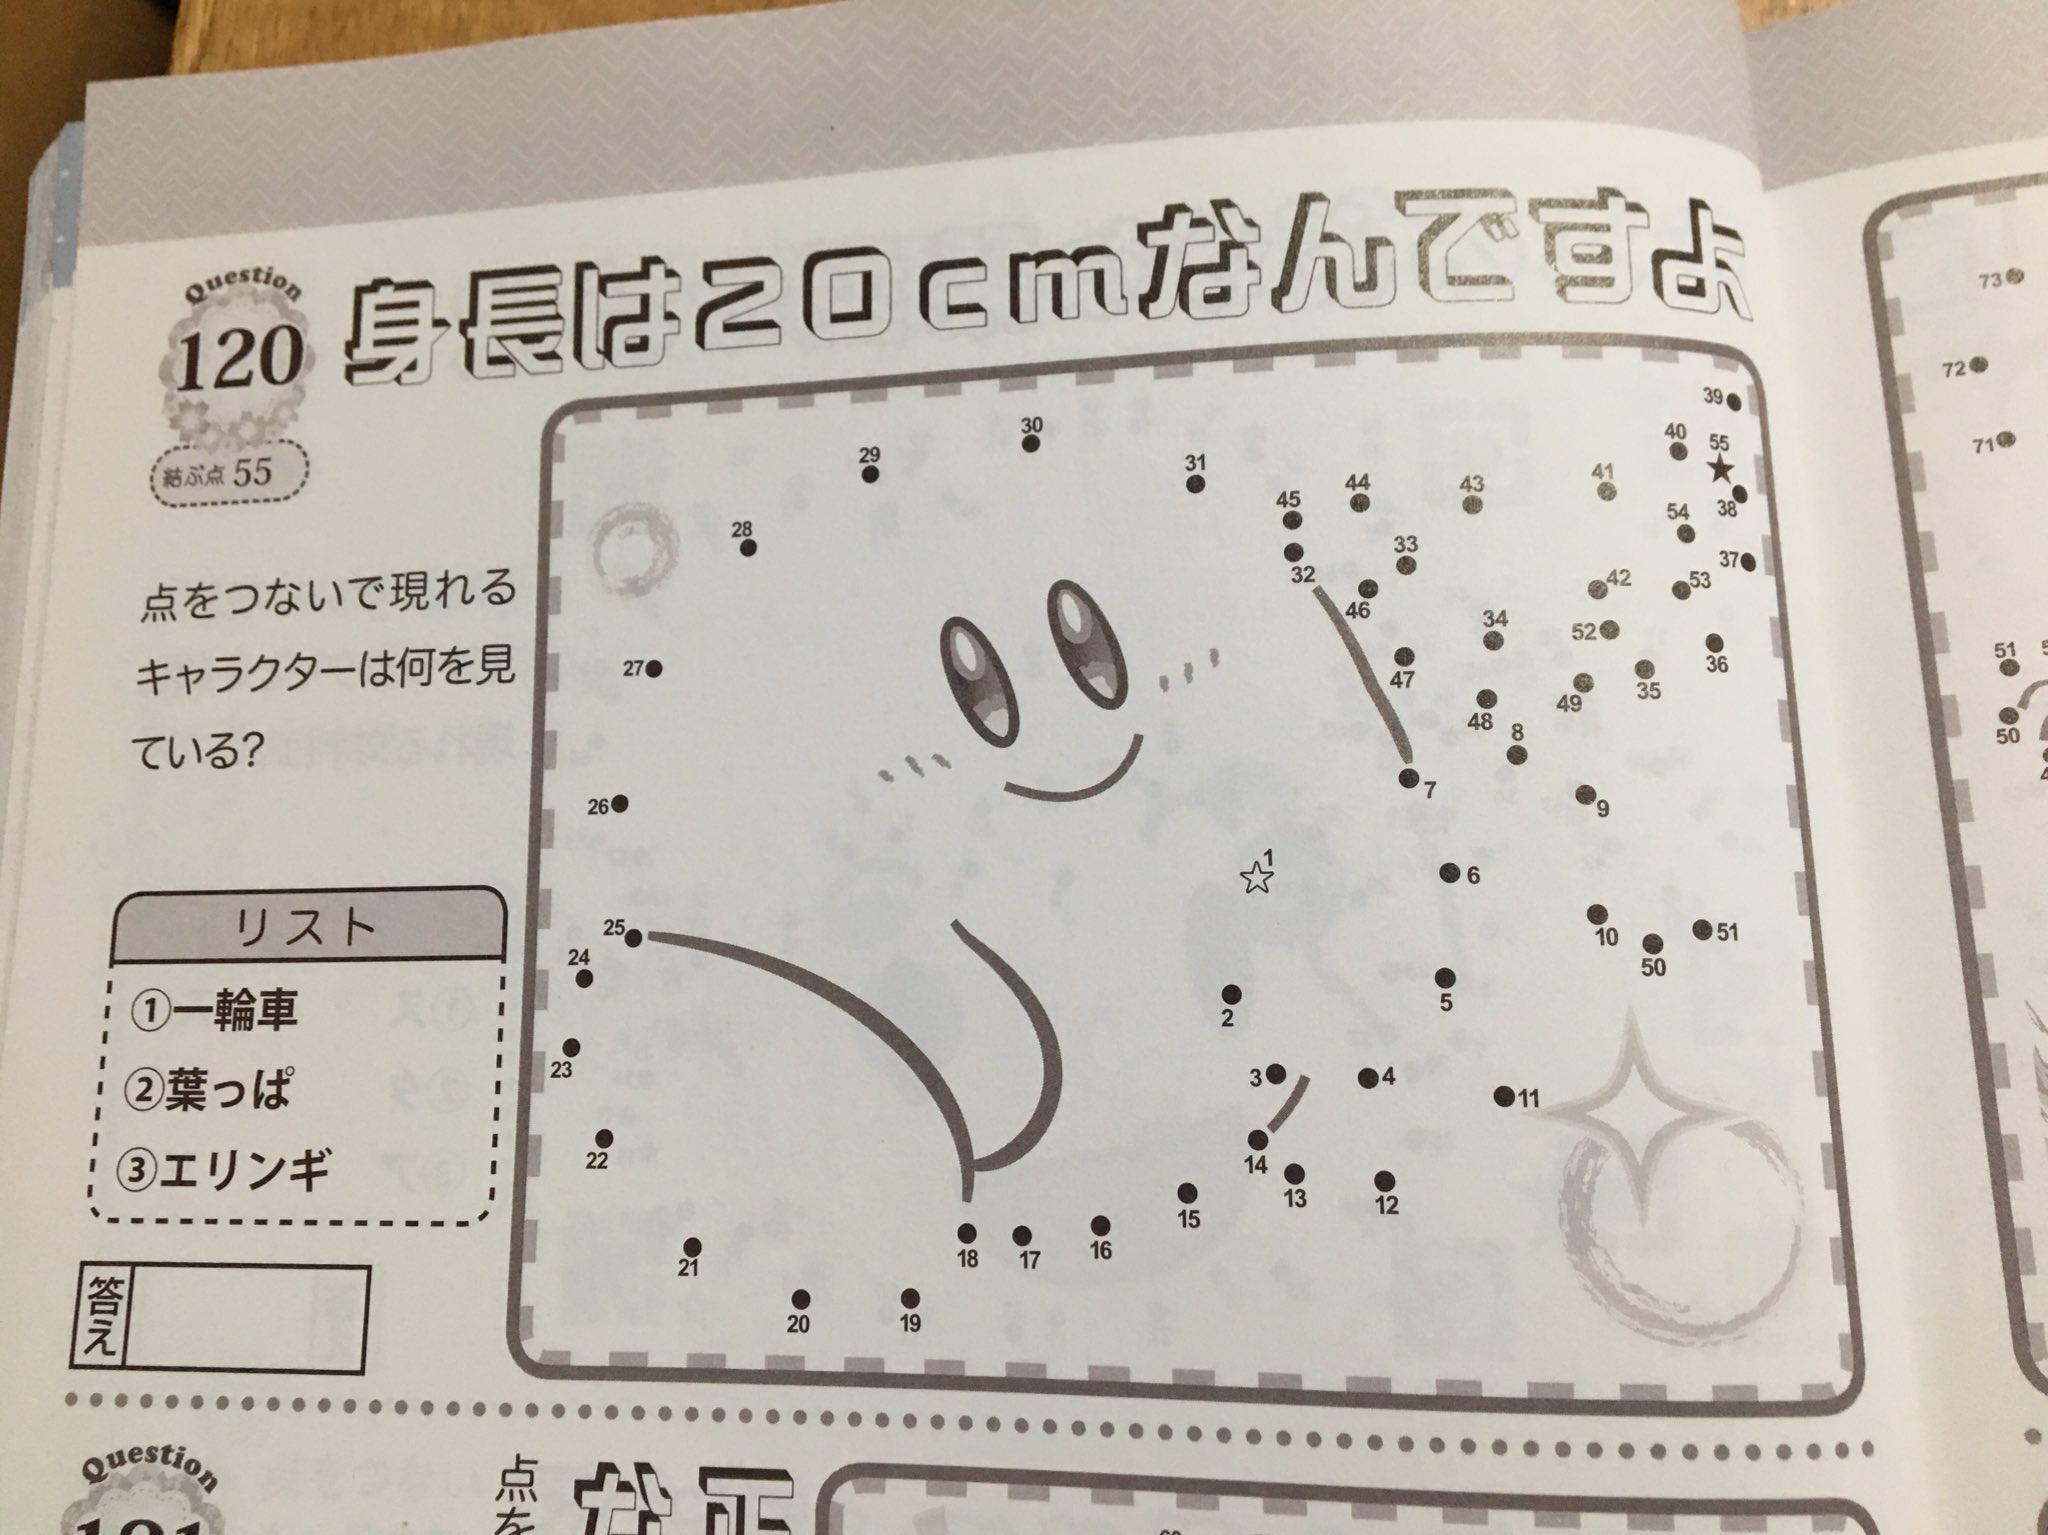 Question
120
身長は20cmなんですよ
結ぶ点 55
点をつないで現れる
キャラクターは何を見
ている?
リスト
①一輪車
②葉っぱ
③エリンギ
答え
39
40
55
30
29
31
41
44
43
38
45
54
28
33
37
32
42
53
46
34
52
36
27
47
35
49
48
8
7
26
9
1
6
25
10
51
50
24
5
2
23
3
4
11
22
14
13
12
15
18
17
16
21
20
19
73
72
71
51
50
Question
121
点を
な正